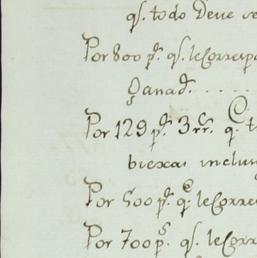 qs. todo Deve se
Por 800 ps. qs. leCorresp
Ganad. . . . .
Por 129 ps. 3 rs. q. t
biexas inclu
Por 500 ps. q. leCorre
Por 700 ps. qs. leCorr